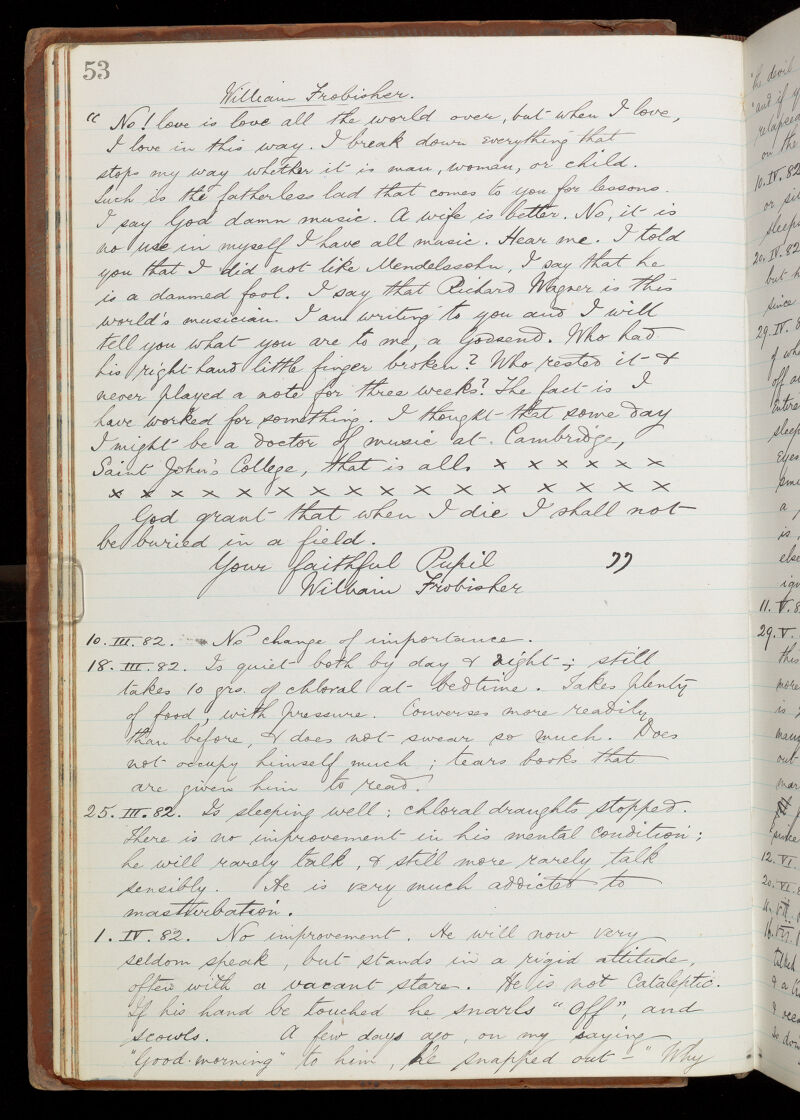 53
William Frobisher.
“ No! love is love all the world over, but when I love,
I love in this way. I break down everything that
stops my way whether it is man, woman, or child.
Such is the fatherless lad that comes to you for lessons.
I say God damn music. A wife is better. No, it is
no use in myself I have all music. Hear me. I told
you that I did not like Mendelssohn, I say that he
is a damned fool. I say that Richard Wagner is this
world's musician. I am writing to you and I will
tell you what you are to me, a Godsend. Who had
his right-hand little finger broken? Who rested it &
never played a note for three weeks? The fact is I
have worked for something. I thought that some day
I might be a doctor of music at Cambridge,
Saint John's College, that is all. x x x x x x
x x x x x x x x x x x x x x x x x
God grant that when I die I shall not
be buried in a field.
Your faithful Pupil ”
William Frobisher
10. III. 82. No change of importance.
18. III. 82. Is quiet both by day & night; still
takes 10 grs. of chloral at bedtime. Takes plenty
of food, with pressure. Converses more readily
than before, & does not swear so much. Does
not occupy himself much; tears books that
are given him to read.
25. III. 82. Is sleeping well; chloral draughts stopped.
There is no improvement in his mental condition;
he will rarely talk, & still more rarely talk
sensibly. He is very much addicted to
masturbation.
1. IV. 82. No improvement. He will now very
seldom speak, but stands in a rigid attitude,
often with a vacant stare. He is not Cataleptic.
If his hand be touched he snarls "Off", and
scowls. A few days ago, on my saying
"Good-morning" to him, he snapped out – "Why
"the devil
"and if
relapsed
on the
10. IV. 82
or
sleep
20. IV. 82
but
since
29. IV. 8
off
sleep
Eyes
a
is
11. V. 8
29. V.
this
more
is
out
since
12. VI.
20. VI. 8
talked